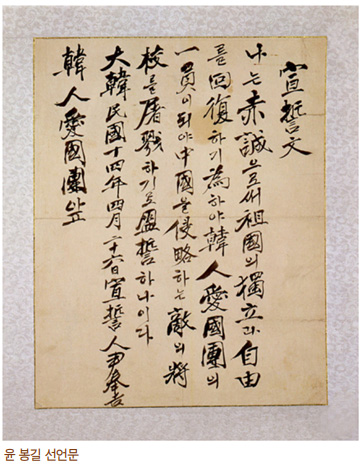 宣誓文
나는赤誠으로써祖國의獨立과自由
를回復하기爲하야韓人愛國團의
一員이되야中國을侵略하는敵의將
校를屠戮하기로盟誓하나이다
大韓民國十四年四月二十六日宣誓人尹奉吉
韓人愛國團앞
윤 봉길 선언문